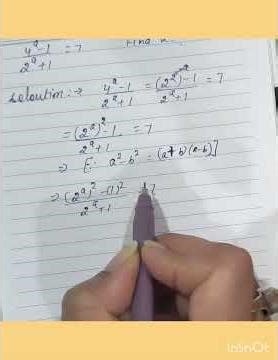 4^a-1 / 2^a+1 = 7
Soloution:→ 4^a-1 / 2^a+1 = (2^2)^a-1 / 2^a+1 = 7
= (2^a)^2-1 / 2^a+1 = 7
⇒ [∵ a^2-b^2 = (a+b)(a-b)]
⇒ (2^a)^2-(1)^2 / 2^a+1 = 7
InShOt